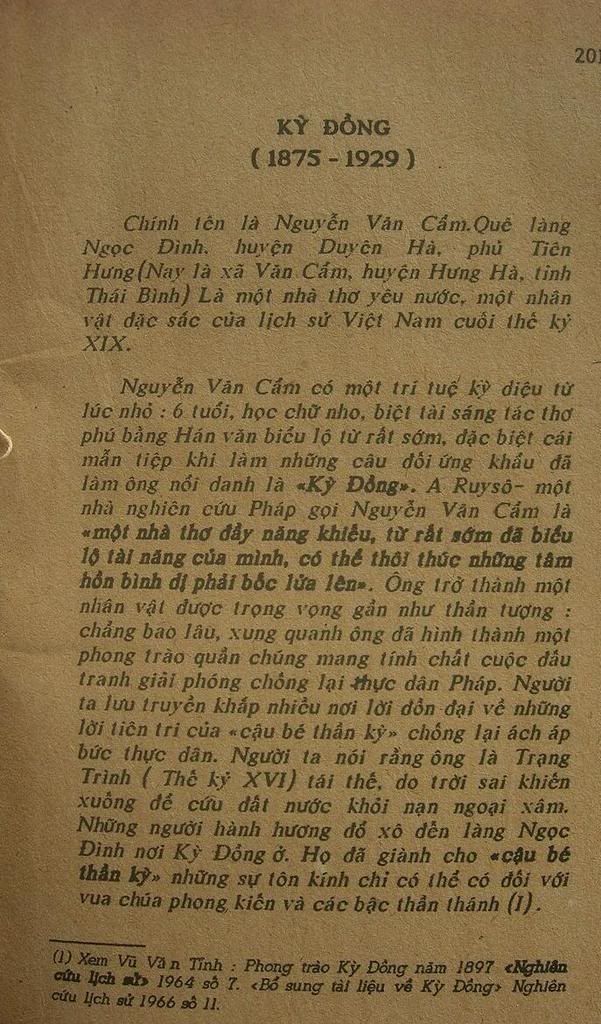 201
KỲ ĐỒNG
( 1875 - 1929 )
Chính tên là Nguyễn Văn Cẩm.Quê làng
Ngọc Đình, huyện Duyên Hà, phủ Tiên
Hưng(Nay là xã Văn Cẩm, huyện Hưng Hà, tỉnh
Thái Bình) Là một nhà thơ yêu nước, một nhân
vật đặc sắc của lịch sử Việt Nam cuối thế kỷ
XIX.
Nguyễn Văn Cẩm có một trí tuệ kỳ diệu từ
lúc nhỏ : 6 tuổi, học chữ nho, biệt tài sáng tác thơ
phú bằng Hán văn biểu lộ từ rất sớm, đặc biệt cái
mẫn tiệp khi làm những câu đối ứng khẩu đã
làm ông nổi danh là «Kỳ Đồng». A Ruysô- một
nhà nghiên cứu Pháp gọi Nguyễn Văn Cẩm là
«một nhà thơ đầy năng khiếu, từ rất sớm đã biểu
lộ tài năng của mình, có thể thôi thúc những tâm
hồn bình dị phải bốc lửa lên». Ông trở thành một
nhân vật được trọng vọng gần như thần tượng :
chẳng bao lâu, xung quanh ông đã hình thành một
phong trào quần chúng mang tính chất cuộc đấu
tranh giải phóng chống lại thực dân Pháp. Người
ta lưu truyền khắp nhiều nơi lời đồn đại về những
lời tiên tri của «cậu bé thần kỳ» chống lại ách áp
bức thực dân. Người ta nói rằng ông là Trạng
Trình ( Thế kỷ XVI) tái thế, do trời sai khiến
xuống để cứu đất nước khỏi nạn ngoại xâm.
Những người hành hương đổ xô đến làng Ngọc
Đình nơi Kỳ Đồng ở. Họ đã giành cho «cậu bé
thần kỳ» những sự tôn kính chỉ có thể có đối với
vua chúa phong kiến và các bậc thần thánh (I).
(1) Xem Vũ Văn Tỉnh : Phong trào Kỳ Đồng năm 1897 «Nghiên
cứu lịch sử» 1964 số 7. «Bổ sung tài liệu về Kỳ Đồng» Nghiên
cứu lịch sử 1966 số 11.